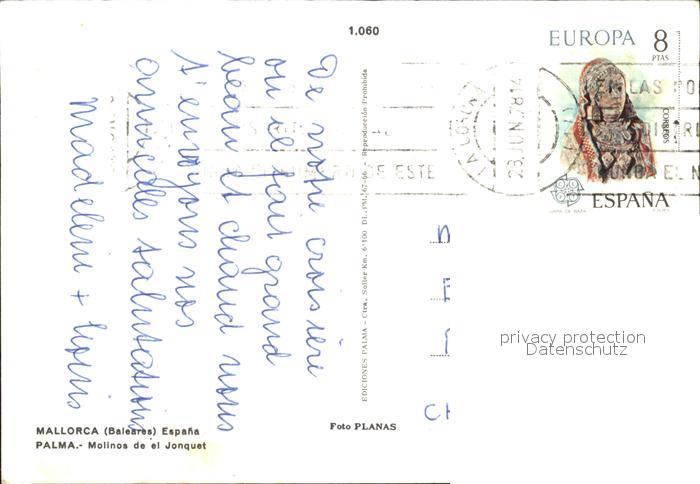 1.060
EUROPA 8
PTAS
CORREOS
ESPAÑA
LA CORUÑA
23. JUN. 78 14
De notre croisière
ou il fait grand
beau et chaud nous
t'envoyons nos
amicales salutations
Madeleine + Louis
EDICIONES PALMA - Ctra. Soller Km. 6'100 DL. PM. Reproducción Prohibida
MALLORCA (Baleares) España
PALMA.- Molinos de el Jonquet
Foto PLANAS
CH
privacy protection
Datenschutz